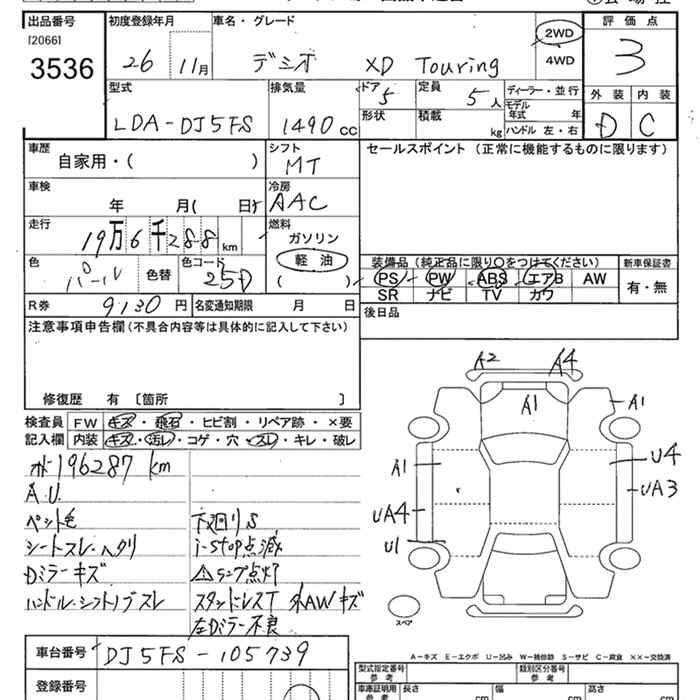 出品番号
[2066]
3536
初度登録年月
26 11月
車名・グレード
デミオ XD Touring
2WD
4WD
評価点
3
型式
LDA-DJ5FS
排気量
1490 CC
ドア
5
定員
5人
ディーラー・並行
モデル
年式 年
形状
積載 kg
ハンドル 左・右
外装 内装
D C
車歴
自家用・( )
シフト
MT
セールスポイント (正常に機能するものに限ります)
車検
年 月( 日)
冷房
AAC
走行
19万6千288 km
燃料
ガソリン
軽油
( )
色
パール
色替
色コード
25D
装備品 (純正品に限り○をつけてください)
PS PW ABS エアB AW
SR ナビ TV カワ
新車保証書
有・無
R券
9130 円
名変通知期限 月 日
後日品
注意事項申告欄 (不具合内容等は具体的に記入して下さい)
修復歴 有 〔箇所 〕
検査員
記入欄
FW キズ・飛石・ヒビ割・リペア跡・×要
内装 キズ・汚レ・コゲ・穴・スレ・キレ・破レ
196287 km
A.U.
ペット毛
シートスレ・ヘタリ
Dミラーキズ
ハンドル・シフトノブスレ
下廻りS
i-stop点滅
⚠ランプ点灯
スタッドレスT 外AWキズ
左Dミラー不良
A2 A4
A1
A1
A1
U4
UA3
UA4
U1
スペア
A－キズ E－エクボ U－凹み W－補修跡 S－サビ C－腐食 ××－交換済
車台番号
DJ5FS-105739
登録番号
型式指定番号
参考
類別区分番号
車庫証明用
参考
長さ cm
幅 cm
高さ cm